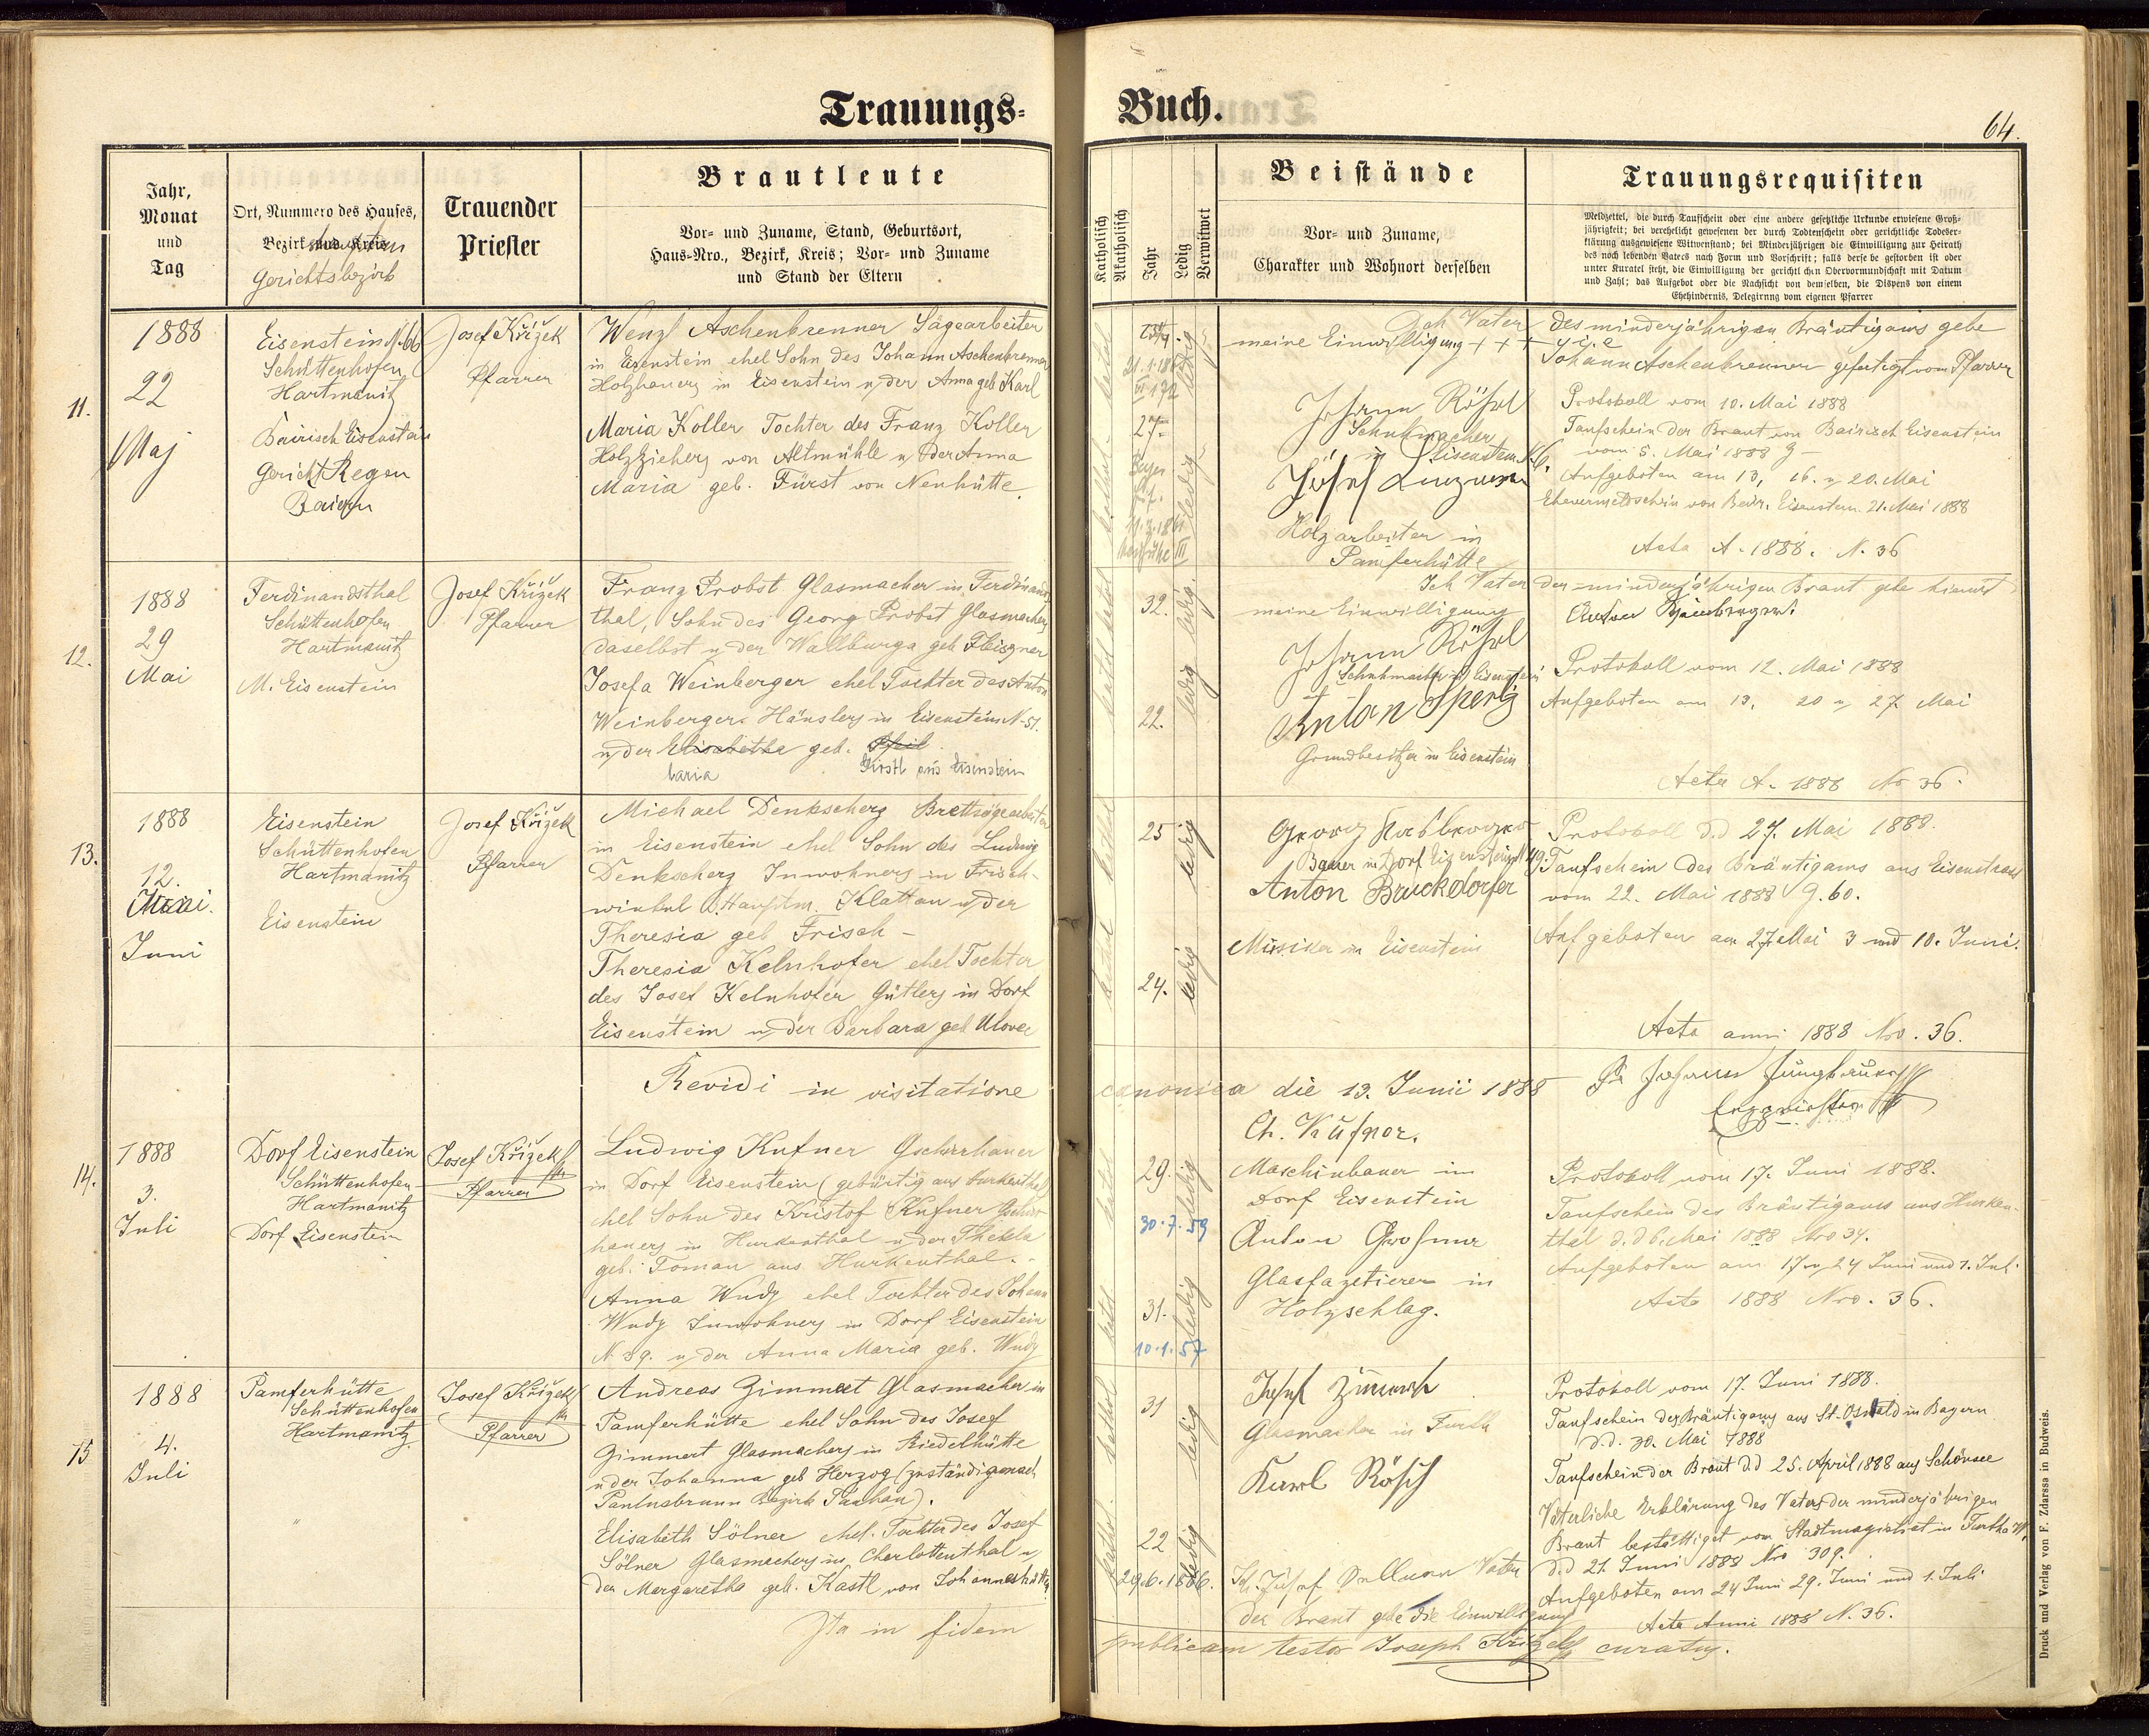 Trauungs-
Buch.
64.
Jahr,
Monat
und
Tag
Ort, Nummero des Hauses,
Bezirk und Kreis
Gerichtsbezirk
Trauender
Priester
Brautleute
Vor- und Zuname, Stand, Geburtsort,
Haus-Nro., Bezirk, Kreis; Vor- und Zuname
und Stand der Eltern
Katholisch
Akatholisch
Jahr
Ledig
Verwitwet
Beistände
Vor- und Zuname,
Charakter und Wohnort derselben
Trauungsrequisiten
Meldzettel, die durch Taufschein oder eine andere gesetzliche Urkunde erwiesene Groß-
jährigkeit; bei verehelicht gewesenen der durch Todtenschein oder gerichtliche Todeser-
klärung ausgewiesene Witwenstand; bei Minderjährigen die Einwilligung zur Heirath
des noch lebenden Vaters nach Form und Vorschrift; falls derselbe gestorben ist oder
unter Kuratel steht, die Einwilligung der gerichtlichen Obervormundschaft mit Datum
und Zahl; das Aufgebot oder die Nachsicht von demselben, die Dispens von einem
Ehehindernis, Delegirung vom eigenen Pfarrer
11.
1888
22
Maj
Eisenstein N. 66
Schüttenhofen
Hartmanitz
Bairisch Eisenstein
Gericht Regen
Baiern
Josef Křížek
Pfarrer
Wenzl Aschenbrenner Sägearbeiter
in Eisenstein ehel Sohn des Johann Aschenbrenner
Holzhauers in Eisenstein u der Anna geb Karl
Maria Koller Tochter des Franz Koller
Holzziehers von Altmühle u der Anna
Maria geb. Fürst von Neuhütte.
27
ledig
Ich Vater des minderjährigen Bräutigams gebe
meine Einwilligung + + +
Johann Aschenbrenner gefertigt vom Pfarrer
Johann Röhrl
Schuhmacher
in Eisenstein
Josef
Holzarbeiter in
Pamferhütte
Protokoll vom 10. Mai 1888
Taufschein der Braut von Bairisch Eisenstein
vom 5. Mai 1888
Aufgeboten am 13, 16. u 20. Mai
21. Mai 1888
Acta A. 1888. N. 36
12.
1888
29
Mai
Ferdinandsthal
Schüttenhofen
Hartmanitz
M. Eisenstein
Josef Křížek
Pfarrer
Franz Probst Glasmacher in Ferdinands
thal, Sohn des Georg Probst Glasmachers
daselbst u der Wallburga geb
Josefa Weinberger ehel Tochter des Anton
Weinberger Häuslers in Eisenstein N. 51.
u der Elisabetha geb. Pfeil
aus Eisenstein
32.
ledig
22.
ledig
Ich Vater der minderjährigen Braut gebe hiemit
meine Einwilligung
Anton Weinberger
Johann Röhrl
Schuhmacher in Eisenstein
Anton Sperl
Grundbesitzer in Eisenstein
Protokoll vom 12. Mai 1888
Aufgeboten am 13, 20 u 27 Mai
Acta A. 1888 No 36.
13.
1888
12.
Mai.
Juni
Eisenstein
Schüttenhofen
Hartmanitz
Eisenstein
Josef Křížek
Pfarrer
Michael Denkscherz Brettsägearbeiter
in Eisenstein ehel Sohn des Ludwig
Denkscherz Inwohners in Frisch-
winkel B. Hauptm. Klattau u der
Theresia geb Frisch -
Theresia Kelnhofer ehel Tochter
des Josef Kelnhofer Gütlers in Dorf
Eisenstein u der Barbara geb
25
ledig
24.
ledig
Georg
Bauer in Dorf Eisenstein N 49.
Anton Bruckdorfer
Musiker in Eisenstein
Protokoll d.d 27. Mai 1888.
Taufschein des Bräutigams aus Eisenstrass
vom 22. Mai 1888 g. 60.
Aufgeboten am 27. Mai 3 und 10. Juni.
Acta anni 1888 Nro. 36.
Revidi in visitatione canonica die 13. Junii 1888
14.
1888
3.
Juli
Dorf Eisenstein
Schüttenhofen
Hartmanitz
Dorf Eisenstein
Josef Křížek
Pfarrer
Ludwig Kufner
in Dorf Eisenstein (gebürtig aus Hurkenthal)
ehel Sohn des Kristof Kufner
hauers in Hurkenthal u der Thekla
geb. Toman aus Hurkenthal.
Anna Wudy ehel Tochter des Johann
Wudy Inwohners in Dorf Eisenstein
N. 39. u der Anna Maria geb. Wudy
29.
ledig
30.7.59
31.
ledig
10.1.57
Ch. Küfner.
Maschinbauer im
Dorf Eisenstein
Anton
Glasfazetierer in
Holzschlag.
Protokoll vom 17. Juni 1888.
Taufschein des Bräutigams aus Hurken-
thal d.d 6. Mai 1888 Nro 34.
Aufgeboten am 17 u 24 Juni und 1. Juli
Acta 1888 Nro. 36.
15
1888
4.
Juli
Pamferhütte
Schüttenhofen
Hartmanitz
Josef Křížek
Pfarrer
Andreas Gimmert Glasmacher in
Pamferhütte ehel Sohn des Josef
Gimmert Glasmachers in Riedelhütte
u der Johanna geb Herzog (zuständig nach
Paulusbrunn Bezirk Tachau).
Elisabeth Sölner ehel. Tochter des Josef
Sölner Glasmachers in Charlottenthal u
der Margaretha geb. Kastl von Johanneshütte
31
ledig
22
ledig
29.6.1866.
Glasmacher in Furth
Karl Rösch
Vater
der Braut gebe die Einwilligung
Protokoll vom 17. Juni 1888.
Taufschein des Bräutigams aus St. Oswald in Bayern
d.d. 30. Mai 1888
Taufschein der Braut d.d 25. April 1888 aus Schönsee
Väterliche Erklärung des Vaters der minderjährigen
Braut bestättiget vom Stadtmagistrat in Furth a W.
d.d 21. Juni 1888 Nro 309.
Aufgeboten am 24 Juni 29. Juni und 1. Juli
Acta Anni 1888 N. 36.
Ita in fidem publicam testor Joseph Křížek curatus.
Druck und Verlag von F. Zdarssa in Budweis.